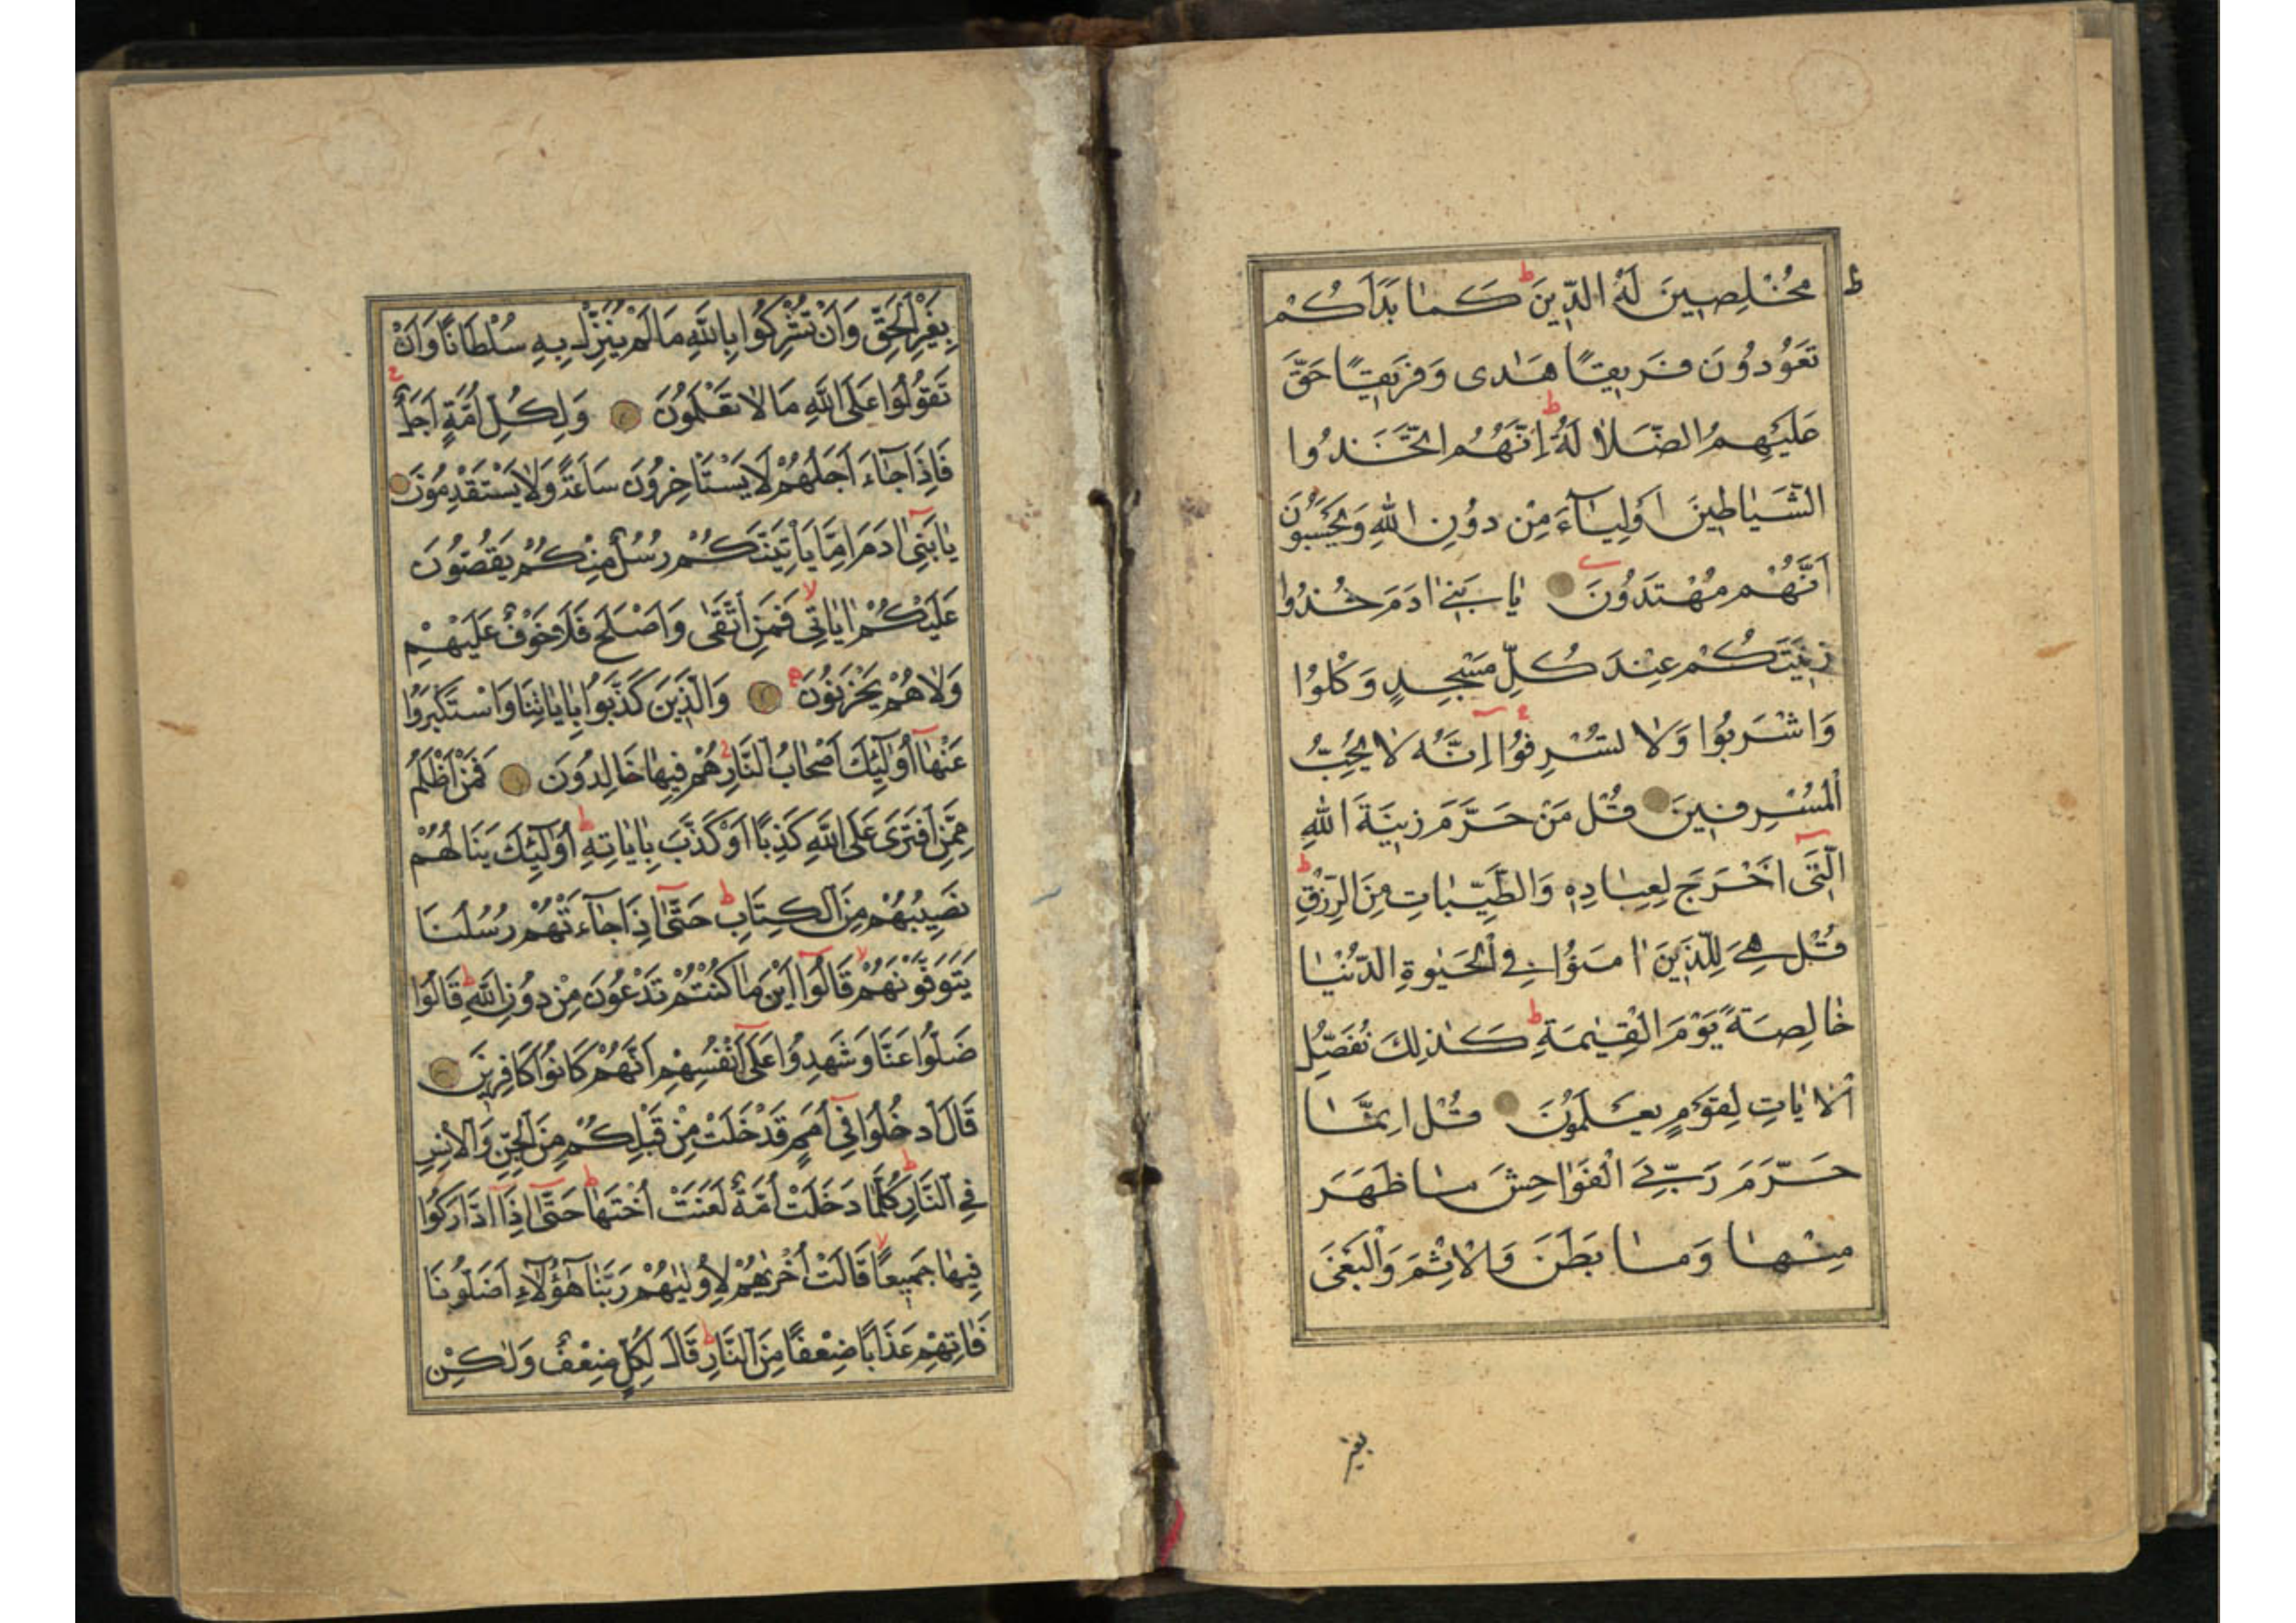 مُخْلِصِينَ لَهُ الدِّينَ ط كَمَا بَدَاَكُمْ
تَعُودُونَ فَرِيقًا هَدٰى وَفَرِيقًا حَقَّ
عَلَيْهِمُ الضَّلَالَةُ ط اِنَّهُمُ اتَّخَذُوا
الشَّيَاطِينَ اَوْلِيَآءَ مِنْ دُونِ اللّٰهِ وَيَحْسَبُونَ
اَنَّهُمْ مُهْتَدُونَ يَا بَنِىٓ اٰدَمَ خُذُوا
زِينَتَكُمْ عِنْدَ كُلِّ مَسْجِدٍ وَكُلُوا
وَاشْرَبُوا وَلَا تُسْرِفُوا اِنَّهُ لَا يُحِبُّ
الْمُسْرِفِينَ قُلْ مَنْ حَرَّمَ زِينَةَ اللّٰهِ
الَّتِىٓ اَخْرَجَ لِعِبَادِهِ وَالطَّيِّبَاتِ مِنَ الرِّزْقِ ط
قُلْ هِىَ لِلَّذِينَ اٰمَنُوا فِى الْحَيٰوةِ الدُّنْيَا
خَالِصَةً يَوْمَ الْقِيٰمَةِ ط كَذٰلِكَ نُفَصِّلُ
الْاٰيَاتِ لِقَوْمٍ يَعْلَمُونَ قُلْ اِنَّمَا
حَرَّمَ رَبِّىَ الْفَوَاحِشَ مَا ظَهَرَ
مِنْهَا وَمَا بَطَنَ وَالْاِثْمَ وَالْبَغْىَ
بغير
بِغَيْرِ الْحَقِّ وَاَنْ تُشْرِكُوا بِاللّٰهِ مَا لَمْ يُنَزِّلْ بِهِ سُلْطَانًا وَاَنْ
تَقُولُوا عَلَى اللّٰهِ مَا لَا تَعْلَمُونَ وَلِكُلِّ اُمَّةٍ اَجَلٌ
فَاِذَا جَآءَ اَجَلُهُمْ لَا يَسْتَاْخِرُونَ سَاعَةً وَلَا يَسْتَقْدِمُونَ
يَا بَنِىٓ اٰدَمَ اِمَّا يَاْتِيَنَّكُمْ رُسُلٌ مِنْكُمْ يَقُصُّونَ
عَلَيْكُمْ اٰيَاتِى لا فَمَنِ اتَّقٰى وَاَصْلَحَ فَلَا خَوْفٌ عَلَيْهِمْ
وَلَا هُمْ يَحْزَنُونَ وَالَّذِينَ كَذَّبُوا بِاٰيَاتِنَا وَاسْتَكْبَرُوا
عَنْهَآ اُولٰٓئِكَ اَصْحَابُ النَّارِ هُمْ فِيهَا خَالِدُونَ فَمَنْ اَظْلَمُ
مِمَّنِ افْتَرٰى عَلَى اللّٰهِ كَذِبًا اَوْ كَذَّبَ بِاٰيَاتِهِ ط اُولٰٓئِكَ يَنَالُهُمْ
نَصِيبُهُمْ مِنَ الْكِتَابِ ط حَتّٰىٓ اِذَا جَآءَتْهُمْ رُسُلُنَا
يَتَوَفَّوْنَهُمْ لا قَالُوٓا اَيْنَ مَا كُنْتُمْ تَدْعُونَ مِنْ دُونِ اللّٰهِ ط قَالُوا
ضَلُّوا عَنَّا وَشَهِدُوا عَلٰىٓ اَنْفُسِهِمْ اَنَّهُمْ كَانُوا كَافِرِينَ
قَالَ ادْخُلُوا فِىٓ اُمَمٍ قَدْ خَلَتْ مِنْ قَبْلِكُمْ مِنَ الْجِنِّ وَالْاِنْسِ
فِى النَّارِ ط كُلَّمَا دَخَلَتْ اُمَّةٌ لَعَنَتْ اُخْتَهَا ط حَتّٰىٓ اِذَا ادَّارَكُوا
فِيهَا جَمِيعًا لا قَالَتْ اُخْرٰيهُمْ لِاُولٰيهُمْ رَبَّنَا هٰٓؤُلَآءِ اَضَلُّونَا
فَاٰتِهِمْ عَذَابًا ضِعْفًا مِنَ النَّارِ ط قَالَ لِكُلٍّ ضِعْفٌ وَلٰكِنْ